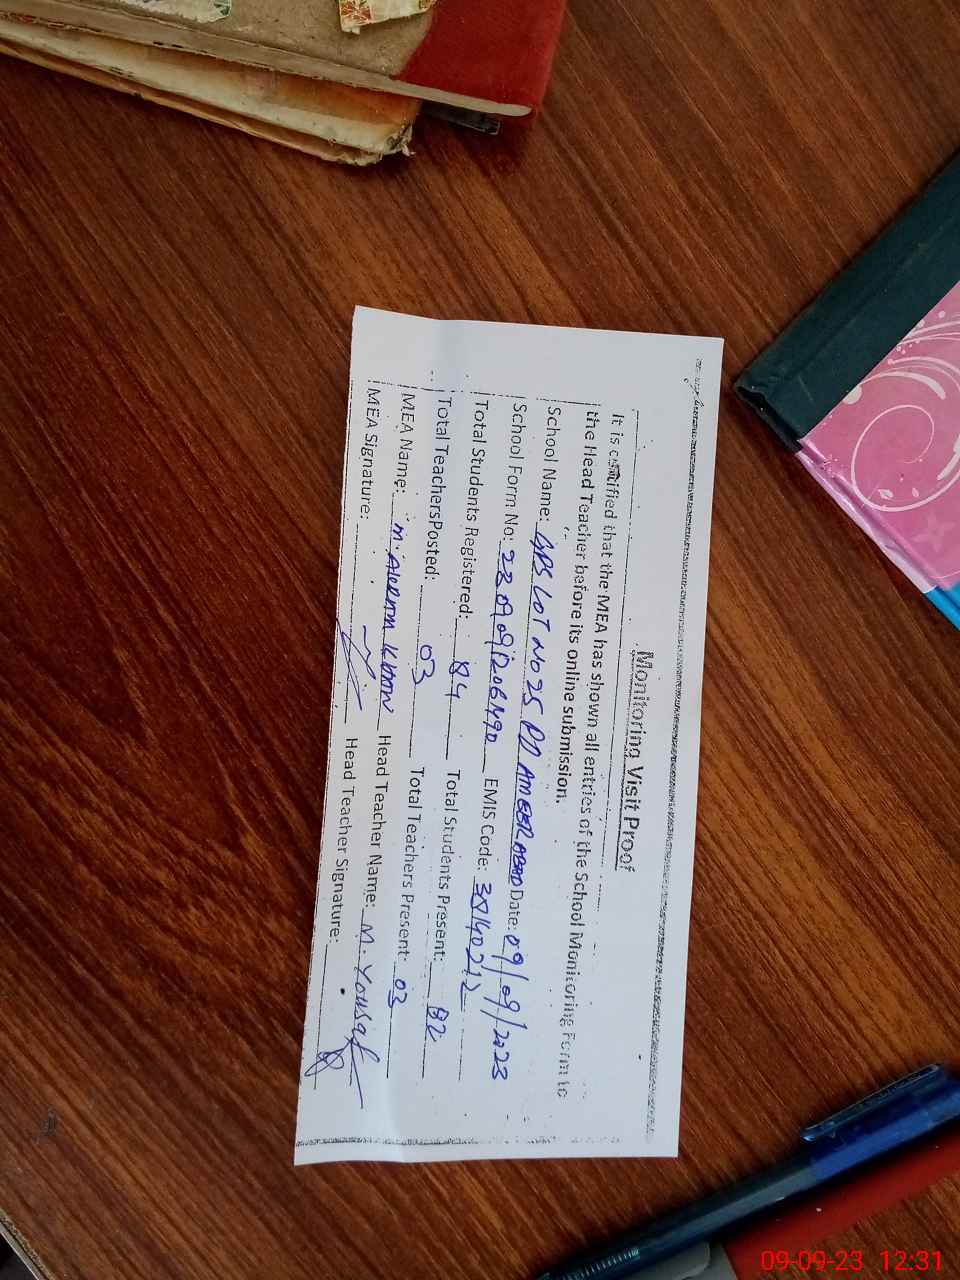 Monitoring Visit Proof
It is certified that the MEA has shown all entries of the School Monitoring Form to
the Head Teacher before its online submission.
School Name: GPS LOT NO 25 PD AMEERABAD Date: 09/09/2023
School Form No: EMIS Code:
Total Students Registered: 84 Total Students Present: 82
Total Teachers Posted: 03 Total Teachers Present: 03
MEA Name: M. Akram Khan Head Teacher Name: M. Yousaf
MEA Signature: Head Teacher Signature:
09-09-23 12:31